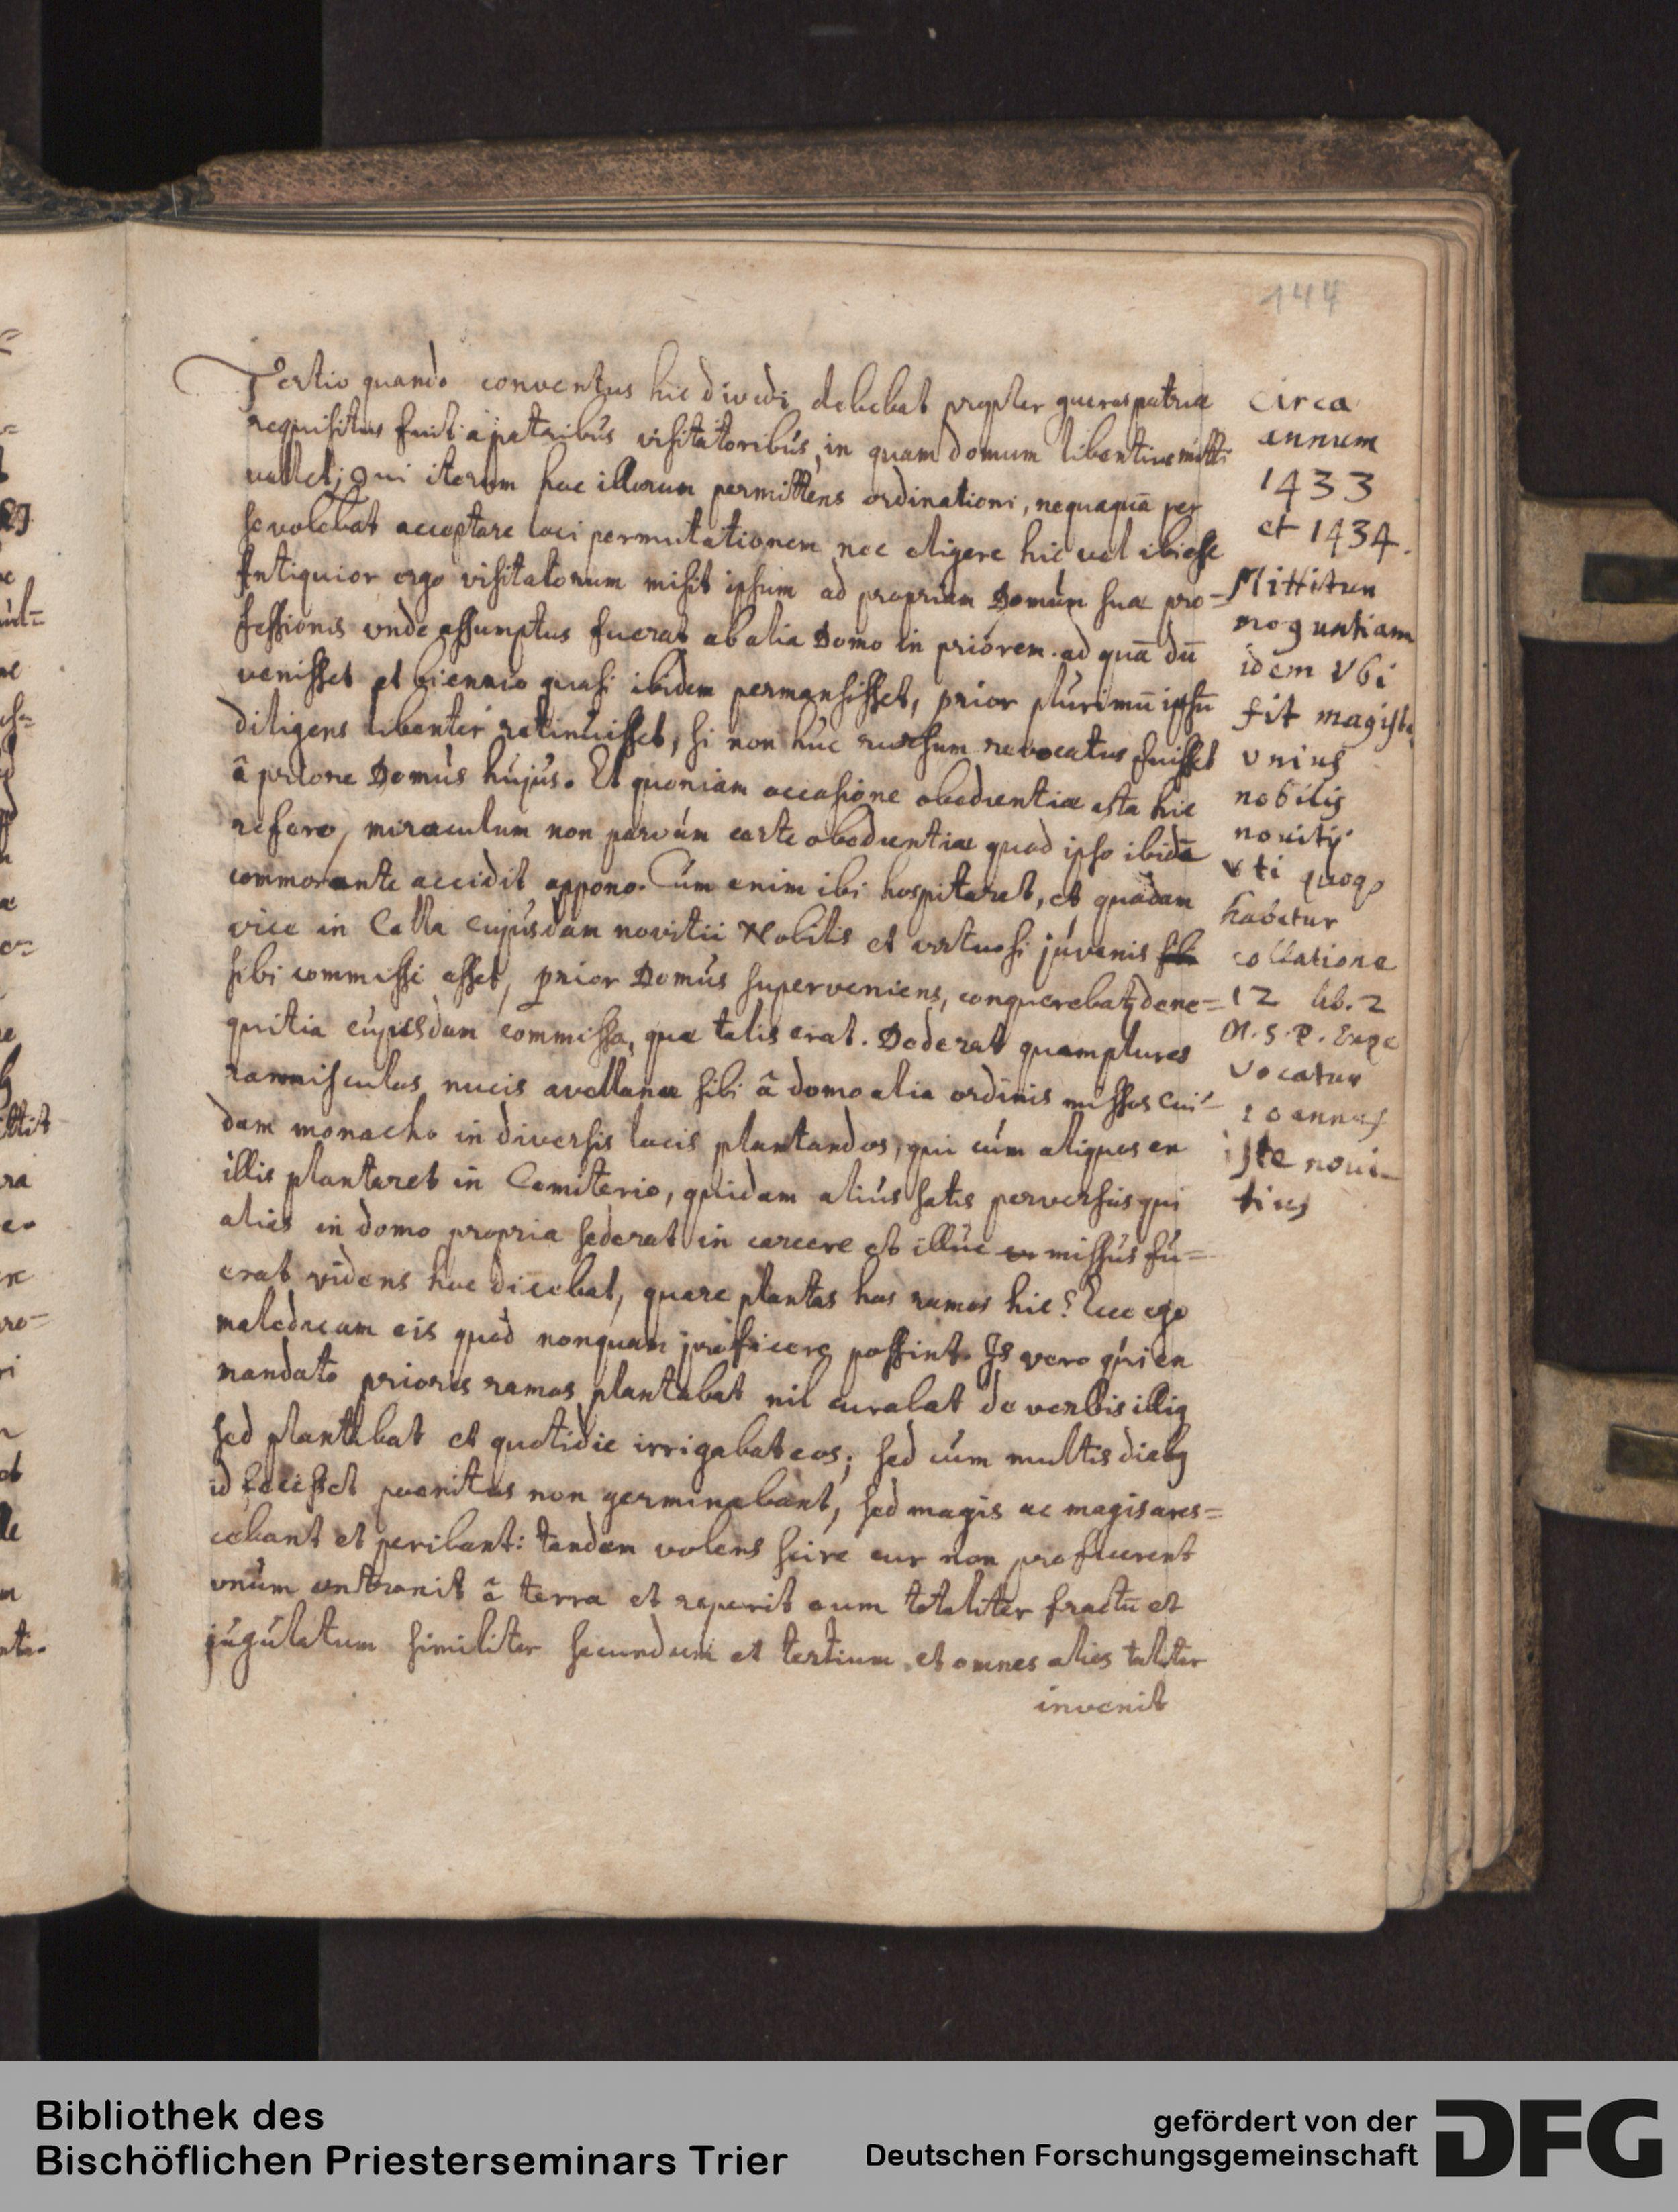 144
Tertio quando conventus hic dividi debebat propter gueras patriæ
requisitus fuit a patribus visitatoribus, in quam domum libentius mitti
vellet; qui iterum hoc illorum permittens ordinationi, nequaquā per
se volebat acceptare loci permutationem nec eligere hic vel ibi esse
Antiquior ergo visitatorum misit ipsum ad propriam Domum suæ pro-
fessionis unde assumptus fuerat ab alia Domo in priorem. ad quā dū
venisset et biennio quasi ibidem permansisset, prior plurimū ipsū
diligens libenter retinuisset, si non huc rursum revocatus fuisset
â priore Domus hujus. Et quoniam occasione obedientiæ ista hic
refero, miraculum non parvum certe obedientiæ quod ipso ibidē
commorante accidit appono. Cum enim ibi hospitaret, et quadam
vice in Cella cujusdam novitii Nobilis et virtuosi juvenis sibi
sibi commissi esset, prior Domus superveniens, conquerebatʒ de ne-
quitia cujusdam commissa, quæ talis erat. Dederat quamplures
ramisculos nucis avellanæ sibi â domo alia ordinis missos cui-
dam monacho in diversis locis plantandos, qui cùm aliquos ex
illis plantaret in Cemiterio, quidam alius satis perversus qui
alias in domo propria sederat in carcere et illuc missus fu-
erat videns hoc dicebat, quare plantas hos ramos hic? Ecce ego
maledicam eis quod nonquam proficere possint. Is vero qui ex
mandato prioris ramos plantabat nil curabat de verbis illiꝰ
sed plantabat et quotidie irrigabat eos; sed cùm multis diebꝰ
id fecisset poenitus non germinabant, sed magis ac magis ares-
cebant et peribant: tandem volens scire cur non proficerent
unum extraxit â terra et reperit eum totaliter fractū et
jugulatum similiter secundum et tertium et omnes alios taliter
invenit
Circa
annum
1433
et 1434.
Mittitur
moguntiam
idem Vbi
fit magiste
vnius
nobilis
nouitij
vti quoqꝫ
habetur
collatione
12 lib. 2
M. S. P.
Vocatur
ioannes
iste noui-
tius
Bibliothek des
Bischöflichen Priesterseminars Trier
gefördert von der
Deutschen Forschungsgemeinschaft
DFG